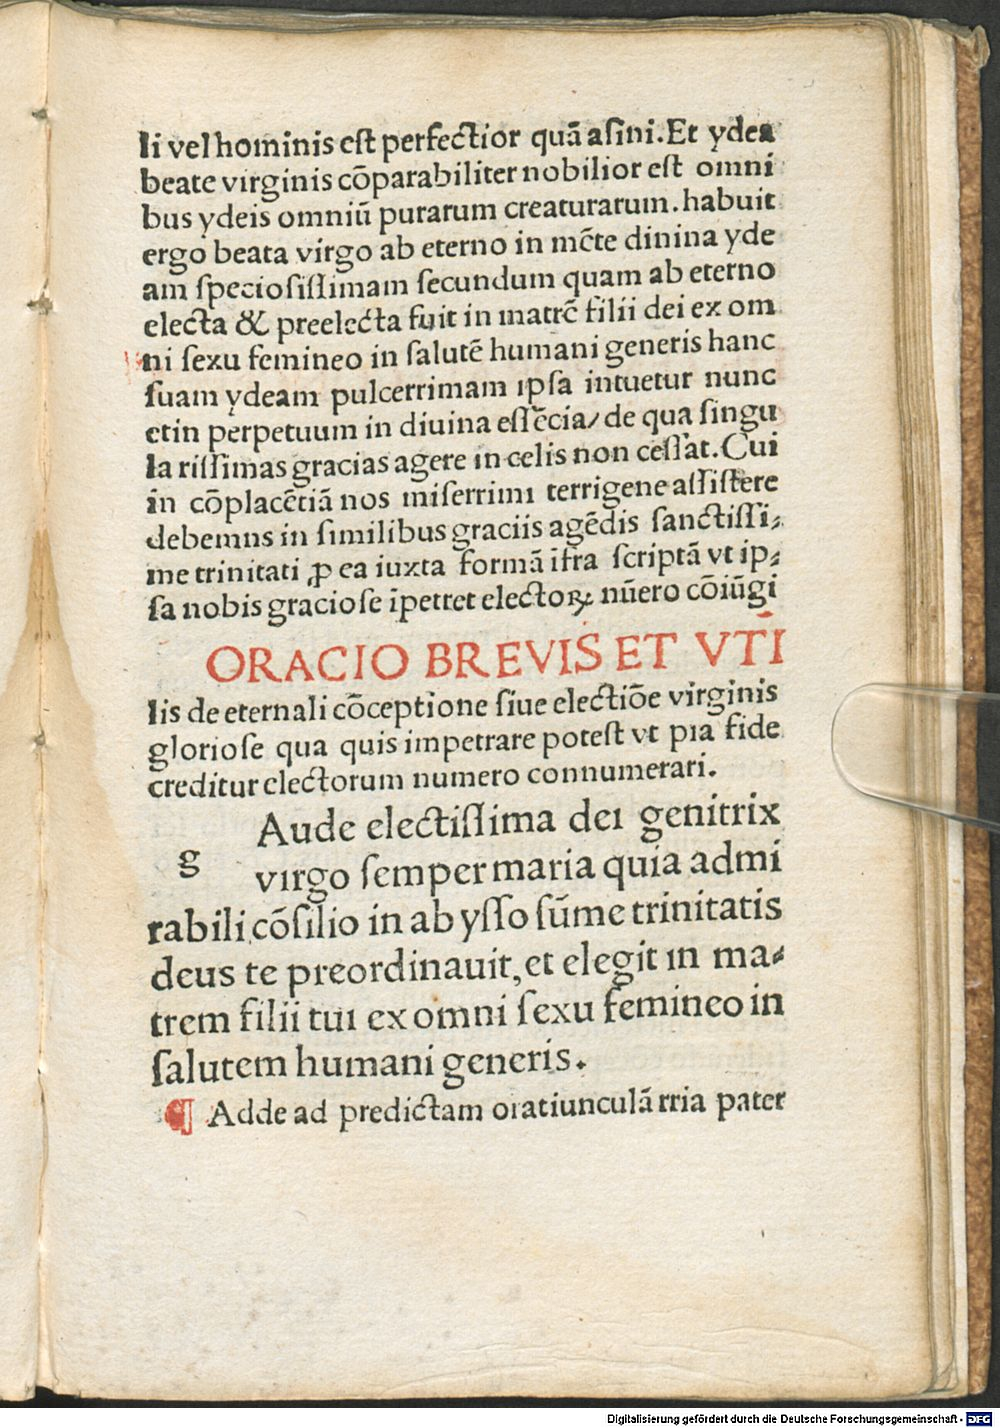 li vel hominis est perfectior quā asini. Et ydea
beate virginis cōparabiliter nobilior est omni
bus ydeis omniū purarum creaturarum. habuit
ergo beata virgo ab eterno in mēte dinina yde
am speciosissimam secundum quam ab eterno
electa & preelecta fuit in matrē filii dei ex om
ni sexu femineo in salutē humani generis hanc
suam ydeam pulcerrimam ipsa intuetur nunc
etin perpetuum in diuina essēcia/ de qua singu
la rissimas gracias agere in celis non cessat. Cui
in cōplacētiā nos miserrimi terrigene assistere
debemns in similibus graciis agēdis sanctissi⸗
me trinitati ꝓ ea iuxta formā ifra scriptā vt ip⸗
sa nobis graciose īpetret electoꝝ nūero cōiūgi
ORACIO BREVIS ET VTI
lis de eternali cōceptione siue electiōe virginis
gloriose qua quis impetrare potest vt pia fide
creditur electorum numero connumerari.
Aude electissima dei genitrix
g virgo semper maria quia admi
rabili cōsilio in abysso sūme trinitatis
deus te preordinauit, et elegit in ma⸗
trem filii tui ex omni sexu femineo in
salutem humani generis.
¶ Adde ad predictam oratiunculā rria pater
Digitalisierung gefördert durch die Deutsche Forschungsgemeinschaft - DFG